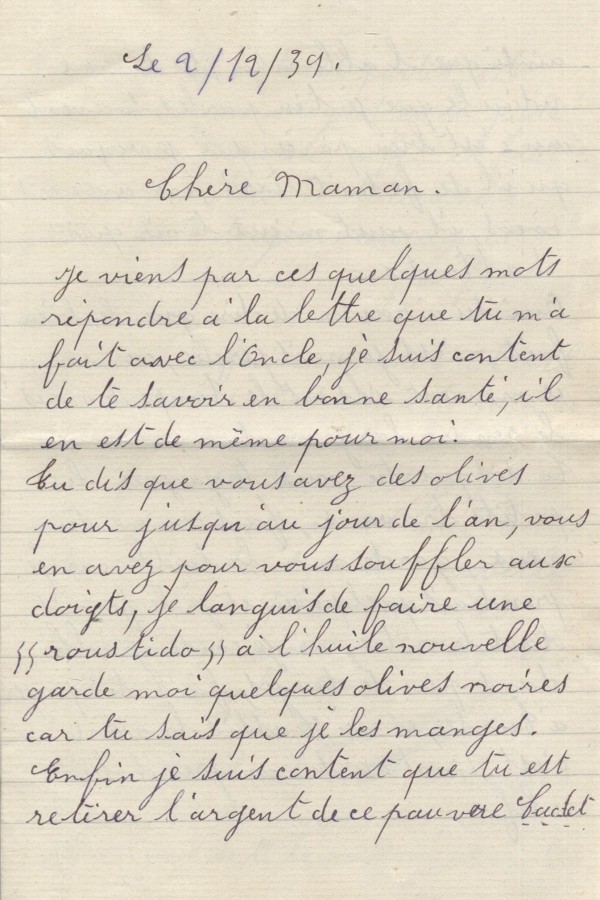 Le 2/12/39.
Chère Maman.
Je viens par ces quelques mots
répondre à la lettre que tu m'a
fait avec l'Oncle, je suis content
de te savoir en bonne santé, il
en est de même pour moi.
Tu dis que vous avez des olives
pour jusqu'au jour de l'an, vous
en avez pour vous souffler aux
doigts, je languis de faire une
"roustido" à l'huile nouvelle
garde moi quelques olives noires
car tu sais que je les manges.
Enfin je suis content que tu est
retirer l'argent de ce pauvre Cadet